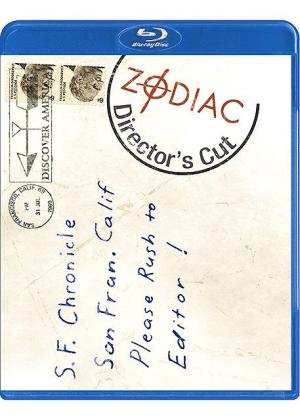 Blu-ray Disc
ZODIAC
Director's Cut
DISCOVER AMERICA
SAN FRANCISCO, CALIF. 
PM
31 JUL
1969
S.F. Chronicle
San Fran. Calif
Please Rush to
Editor !